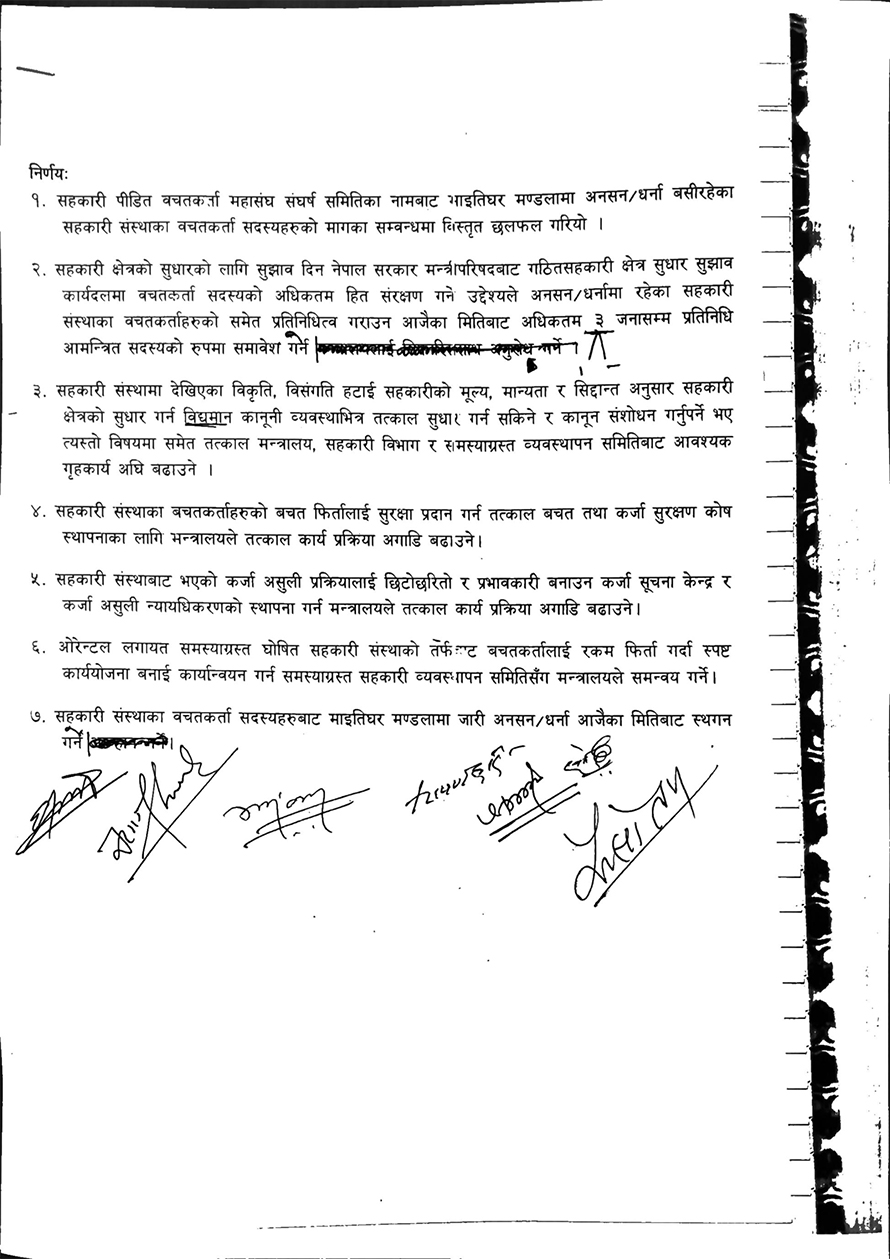 निर्णयः
१. सहकारी पीडित बचतकर्ता महासंघ संघर्ष समितिका नामबाट माइतिघर मण्डलामा अनसन/धर्ना बसीरहेका
सहकारी संस्थाका बचतकर्ता सदस्यहरुको मागका सम्बन्धमा विस्तृत छलफल गरियो ।
२. सहकारी क्षेत्रको सुधारको लागि सुझाव दिन नेपाल सरकार मन्त्रीपरिषदबाट गठितसहकारी क्षेत्र सुधार सुझाव
कार्यदलमा बचतकर्ता सदस्यको अधिकतम हित संरक्षण गर्ने उद्देश्यले अनसन/धर्नामा रहेका सहकारी
संस्थाका बचतकर्ताहरुको समेत प्रतिनिधित्व गराउन आजैका मितिबाट अधिकतम ३ जनासम्म प्रतिनिधि
आमन्त्रित सदस्यको रुपमा समावेश गर्ने
३. सहकारी संस्थामा देखिएका विकृति, विसंगति हटाई सहकारीको मूल्य, मान्यता र सिद्दान्त अनुसार सहकारी
क्षेत्रको सुधार गर्न विद्यमान कानूनी व्यवस्थाभित्र तत्काल सुधार गर्न सकिने र कानून संशोधन गर्नुपर्ने भए
त्यस्तो विषयमा समेत तत्काल मन्त्रालय, सहकारी विभाग र समस्याग्रस्त व्यवस्थापन समितिबाट आवश्यक
गृहकार्य अघि बढाउने ।
४. सहकारी संस्थाका बचतकर्ताहरुको बचत फिर्तालाई सुरक्षा प्रदान गर्न तत्काल बचत तथा कर्जा सुरक्षण कोष
स्थापनाका लागि मन्त्रालयले तत्काल कार्य प्रक्रिया अगाडि बढाउने।
५. सहकारी संस्थाबाट भएको कर्जा असुली प्रक्रियालाई छिटोछरितो र प्रभावकारी बनाउन कर्जा सूचना केन्द्र र
कर्जा असुली न्यायधिकरणको स्थापना गर्न मन्त्रालयले तत्काल कार्य प्रक्रिया अगाडि बढाउने।
६. ओरेन्टल लगायत समस्याग्रस्त घोषित सहकारी संस्थाको तर्फबाट बचतकर्तालाई रकम फिर्ता गर्दा स्पष्ट
कार्ययोजना बनाई कार्यान्वयन गर्न समस्याग्रस्त सहकारी व्यवस्थापन समितिसँग मन्त्रालयले समन्वय गर्ने।
७. सहकारी संस्थाका बचतकर्ता सदस्यहरुबाट माइतिघर मण्डलामा जारी अनसन/धर्ना आजैका मितिबाट स्थगन
गर्ने